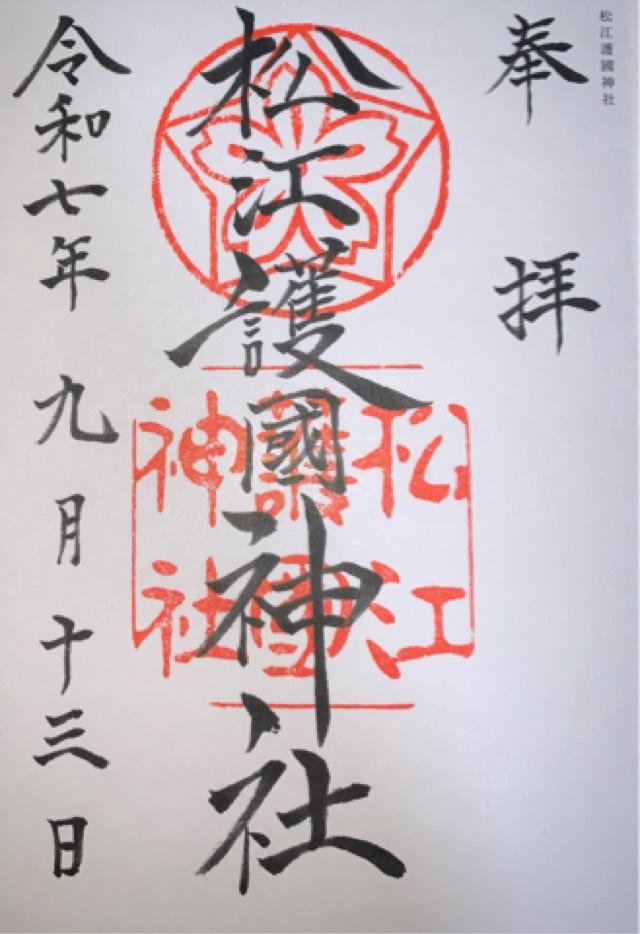 松江護國神社
奉拝
松江護國神社
松江
護國
神社
令和七年九月十三日